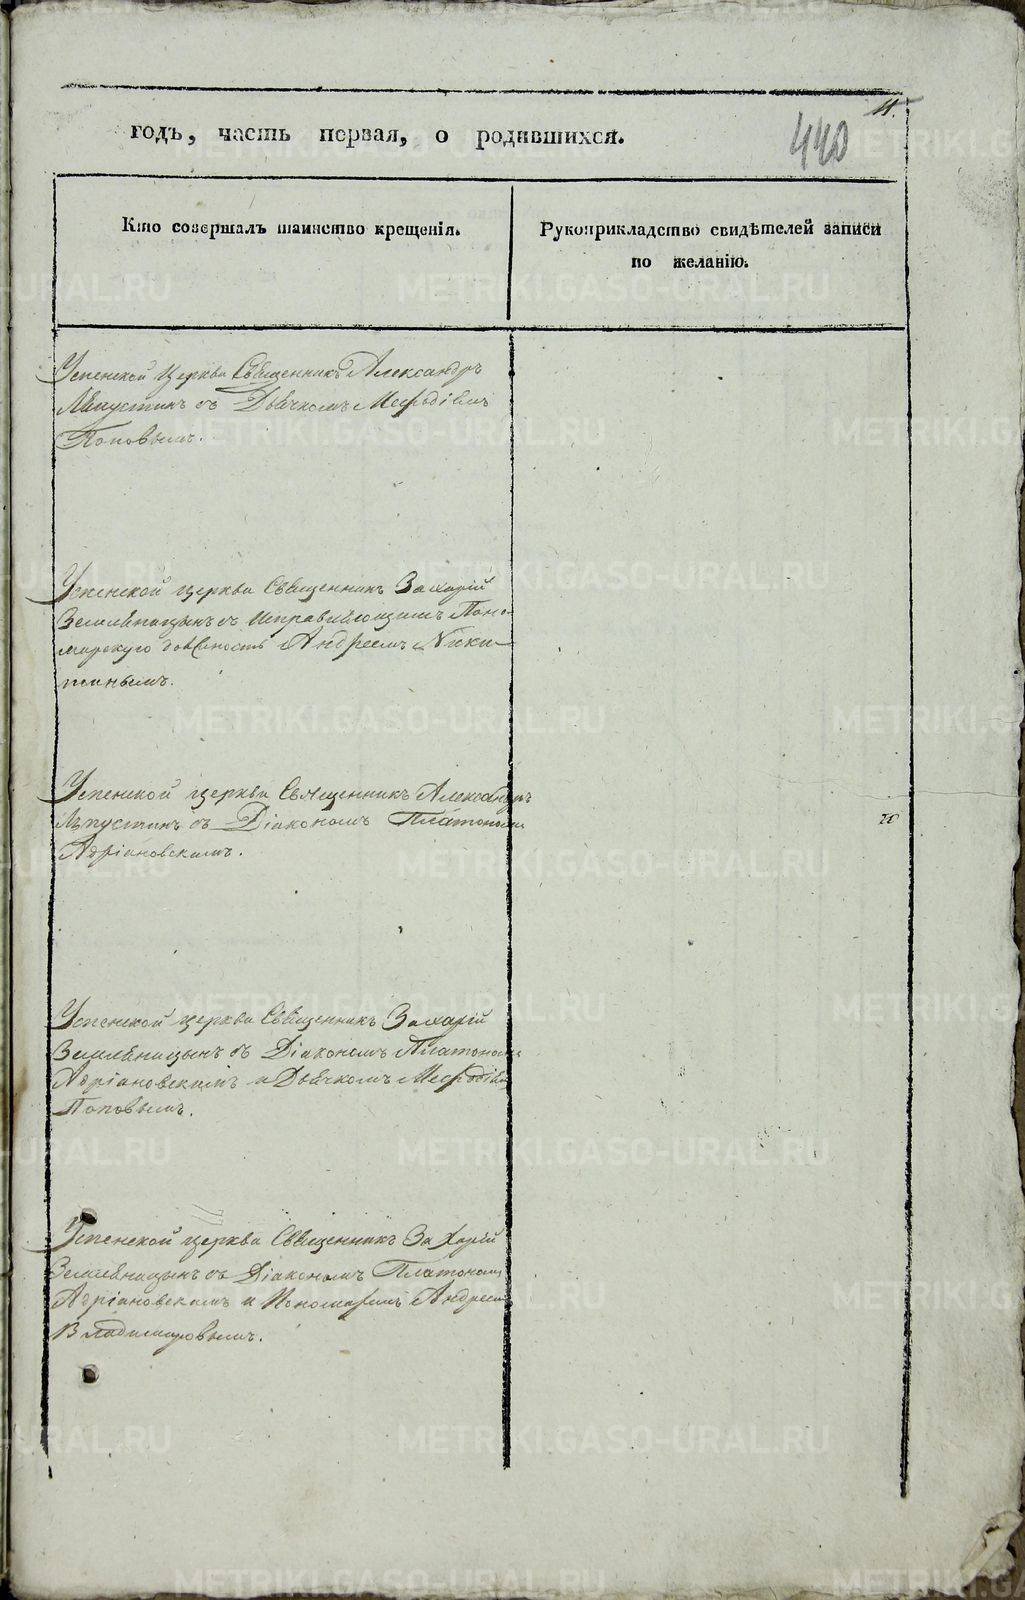 11.
440
годъ, часть первая, о родившихся.
Кто совершалъ таинство крещенія.
Рукоприкладство свидѣтелей записи
по желанію.
Успенской Церкви Священникъ Александръ
Ляпустинъ съ Дьячкомъ Меѳодіемъ
Поповымъ.
Успенской церкви Священникъ Захарій
Земляницынъ съ Исправляющимъ Поно-
марскую должность Андреемъ Ники-
тинымъ.
Успенской церкви Священникъ Александръ
Ляпустинъ съ Діакономъ Платономъ
Адріановскимъ.
Успенской церкви Священникъ Захарій
Земляницынъ съ Діакономъ Платономъ
Адріановскимъ и Дьячкомъ Меѳодіемъ
Поповымъ.
Успенской церкви Священникъ Захарій
Земляницынъ съ Діакономъ Платономъ
Адріановскимъ и Пономаремъ Андреемъ
Владимировымъ.
METRIKI.GASO-URAL.RU